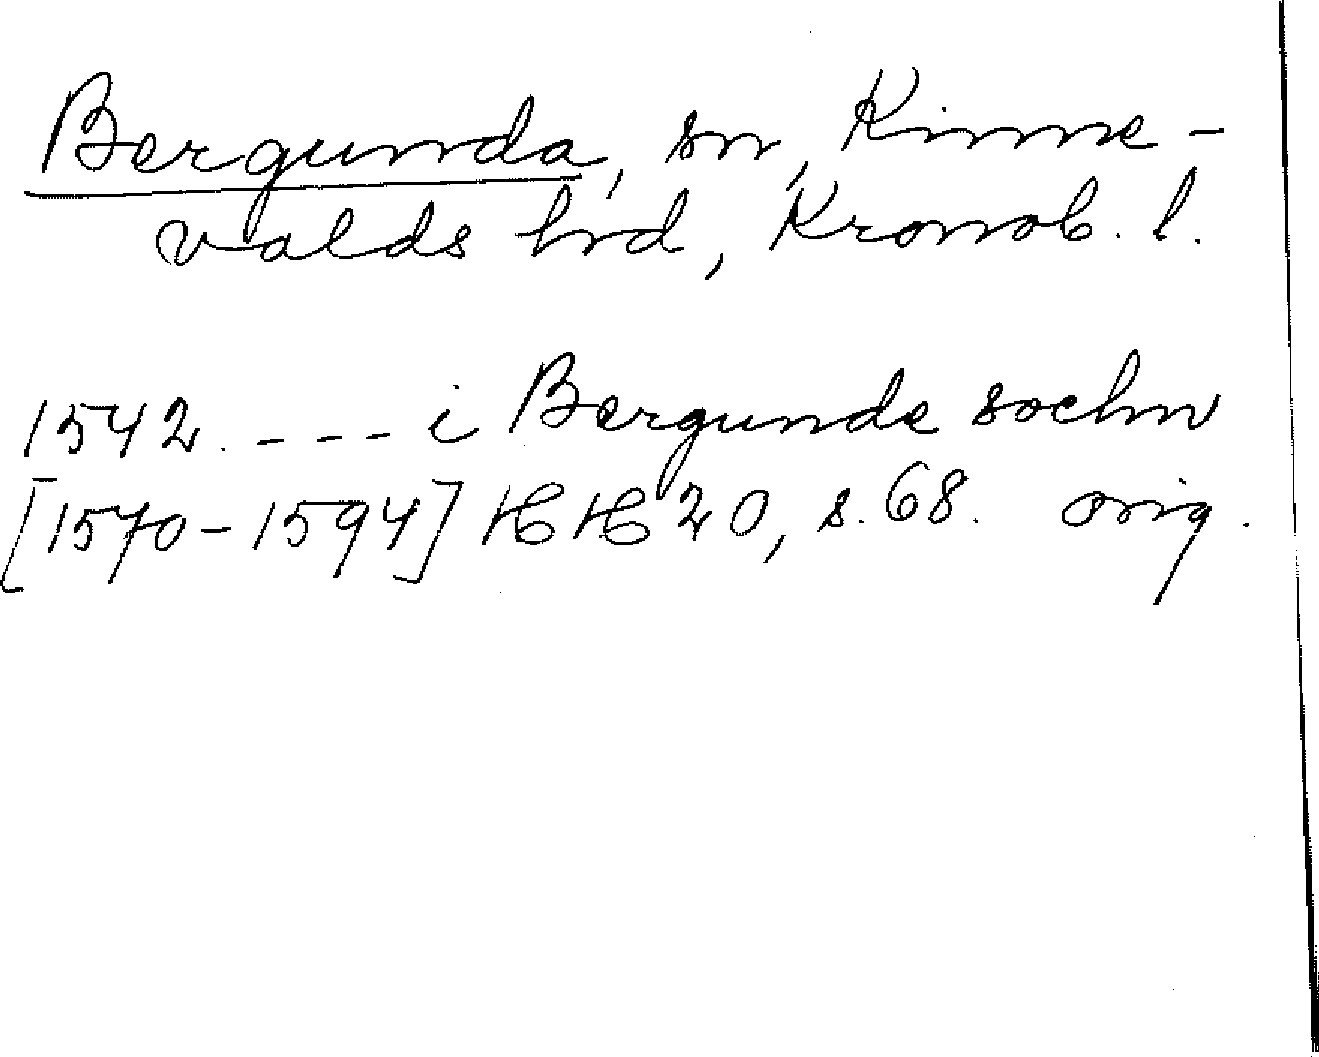 Bergunda, sn, Kinne-
valds hrd, Kronob. l.
1542. --- i Bergunde sochn
[1570-1594] HH 20, s. 68. orig.